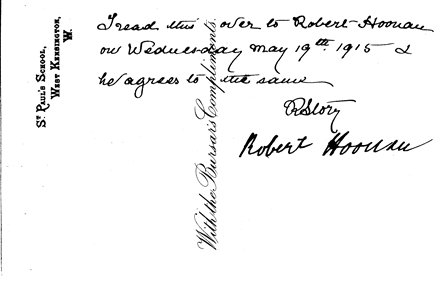 I read this over to Robert Hoonan
on Wednesday May 19th 1915 &
he agrees to the same
RStory
Robert Hoonan
St Paul's School,
West Kensington,
W.
With the Bursar's Compliments.